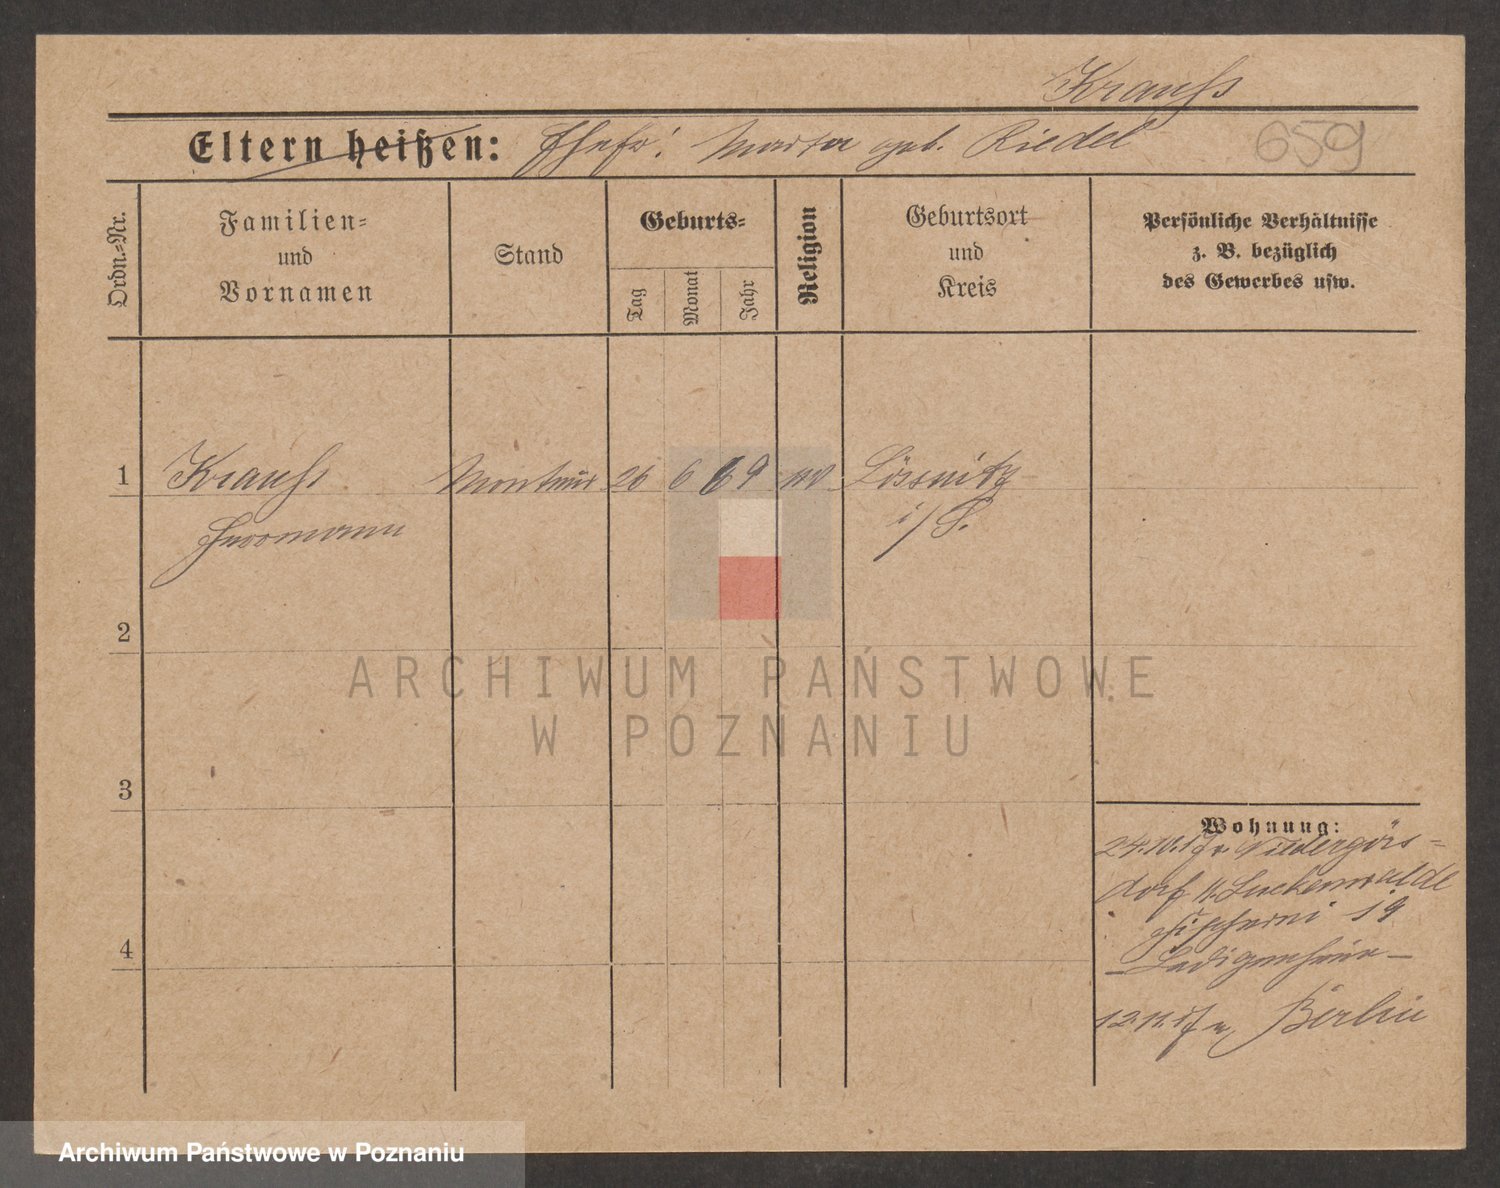 Krauss
Eltern heißen: Ehefr: Marta geb. Riedel
659
Ordn.=Nr.
Familien=
und
Vornamen
Stand
Geburts=
Tag
Monat
Jahr
Religion
Geburtsort
und
Kreis
Persönliche Verhältnisse
z. B. bezüglich
des Gewerbes usw.
1 Krauss Monteur 26 6 69 ev Lössnitz
Herrmann i/S.
2
3
4
Wohnung:
24.10.17 v. Niedergörs=
dorf b. Luckenwalde
19
- Ledigenheim -
12.11.17 n Berlin
ARCHIWUM PAŃSTWOWE
W POZNANIU
Archiwum Państwowe w Poznaniu